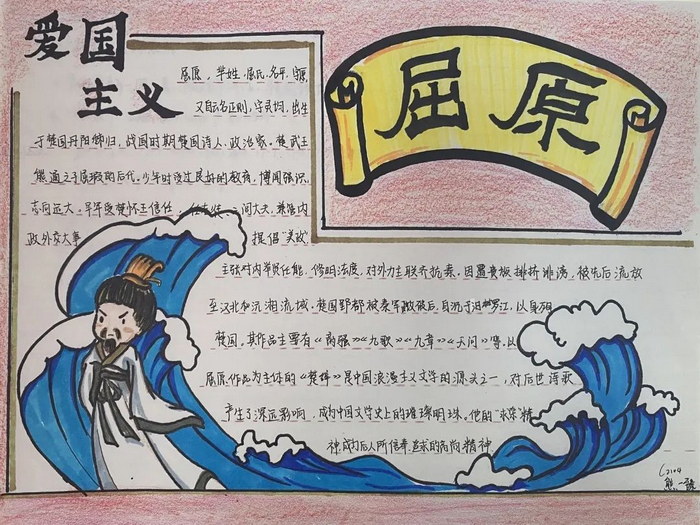 爱国
主义
屈原
屈原，芈姓，屈氏，名平，字原
又自云名正则，字灵均，出生
于楚国丹阳秭归，战国时期楚国诗人、政治家。楚武王
熊通之子屈瑕的后代。少年时受过良好的教育，博闻强识，
志向远大。早年受楚怀王信任，任左徒、三闾大夫，兼管内
政外交大事 提倡“美政”
主张对内举贤任能，修明法度，对外力主联齐抗秦。因遭贵族排挤诽谤，被先后流放
至汉北和沅湘流域。楚国郢都被秦军攻破后，自沉于汨罗江，以身殉
楚国。其作品主要有《离骚》《九歌》《九章》《天问》等。以
屈原作品为主体的《楚辞》是中国浪漫主义文学的源头之一，对后世诗歌
产生了深远影响，成为中国文学史上的璀璨明珠。他的“求索”精
神，成为后人所信奉、追求的高尚精神